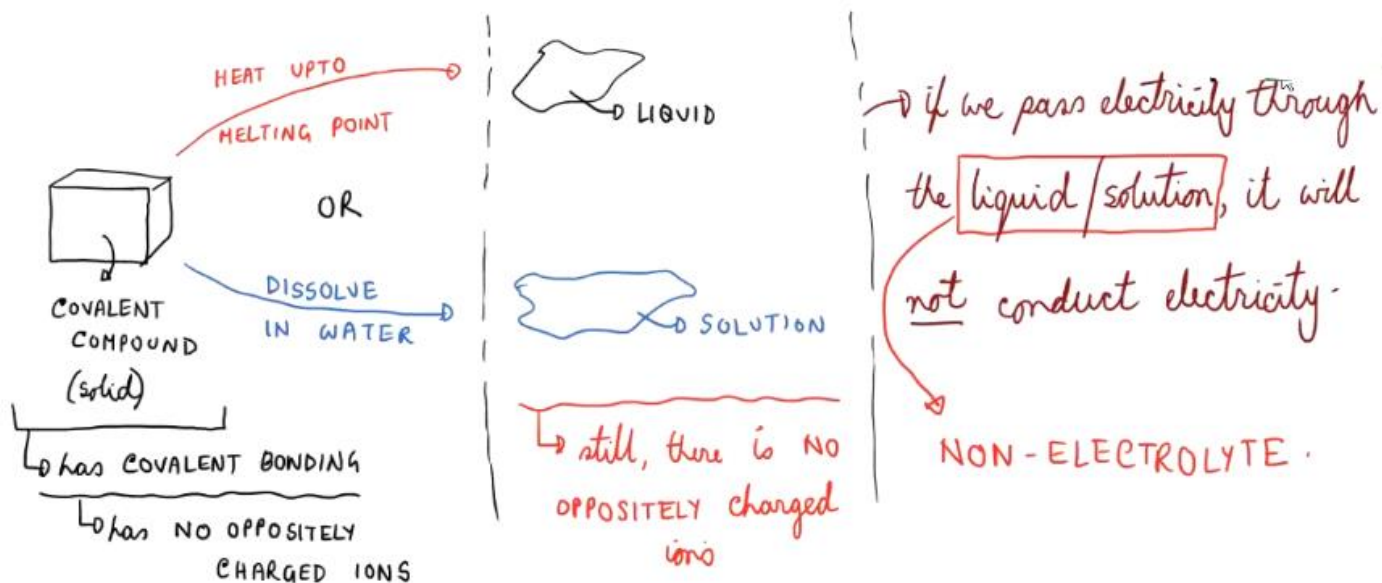 HEAT UPTO
MELTING POINT
OR
DISSOLVE
IN WATER
COVALENT
COMPOUND
(solid)
has COVALENT BONDING
has NO OPPOSITELY
CHARGED IONS
LIQUID
SOLUTION
still, there is NO
OPPOSITELY charged
ions
if we pass electricity through
the liquid/solution, it will
not conduct electricity.
NON-ELECTROLYTE.